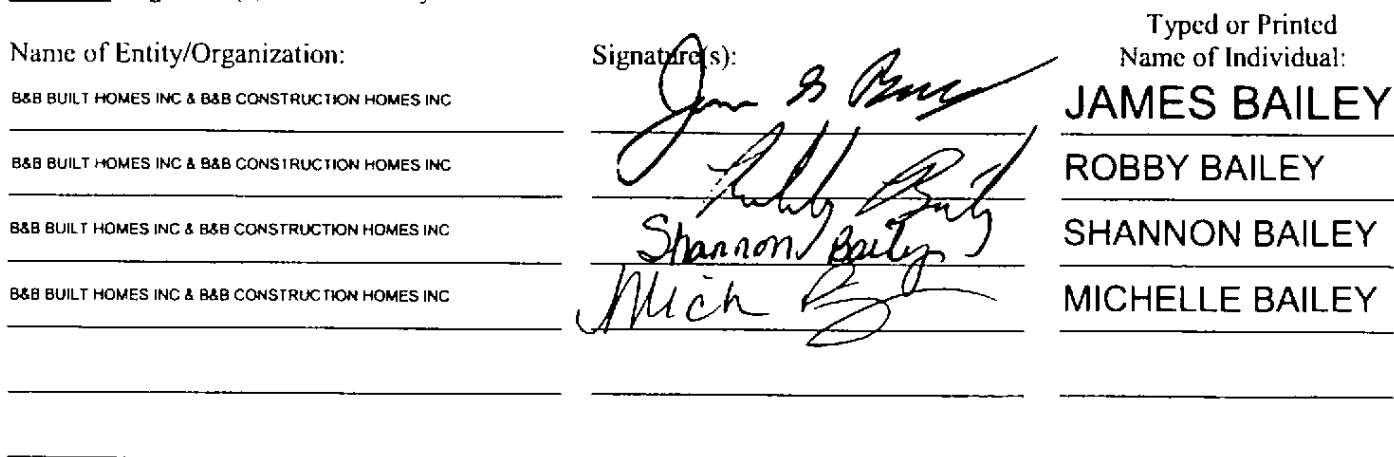 Typed or Printed
Name of Entity/Organization: Signature(s): Name of Individual:
B&B BUILT HOMES INC & B&B CONSTRUCTION HOMES INC JAMES BAILEY
B&B BUILT HOMES INC & B&B CONSTRUCTION HOMES INC ROBBY BAILEY
B&B BUILT HOMES INC & B&B CONSTRUCTION HOMES INC Shannon Bailey SHANNON BAILEY
B&B BUILT HOMES INC & B&B CONSTRUCTION HOMES INC MICHELLE BAILEY